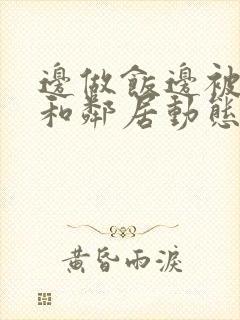 邊做飯邊被
和鄰居動態
黃昏雨淚